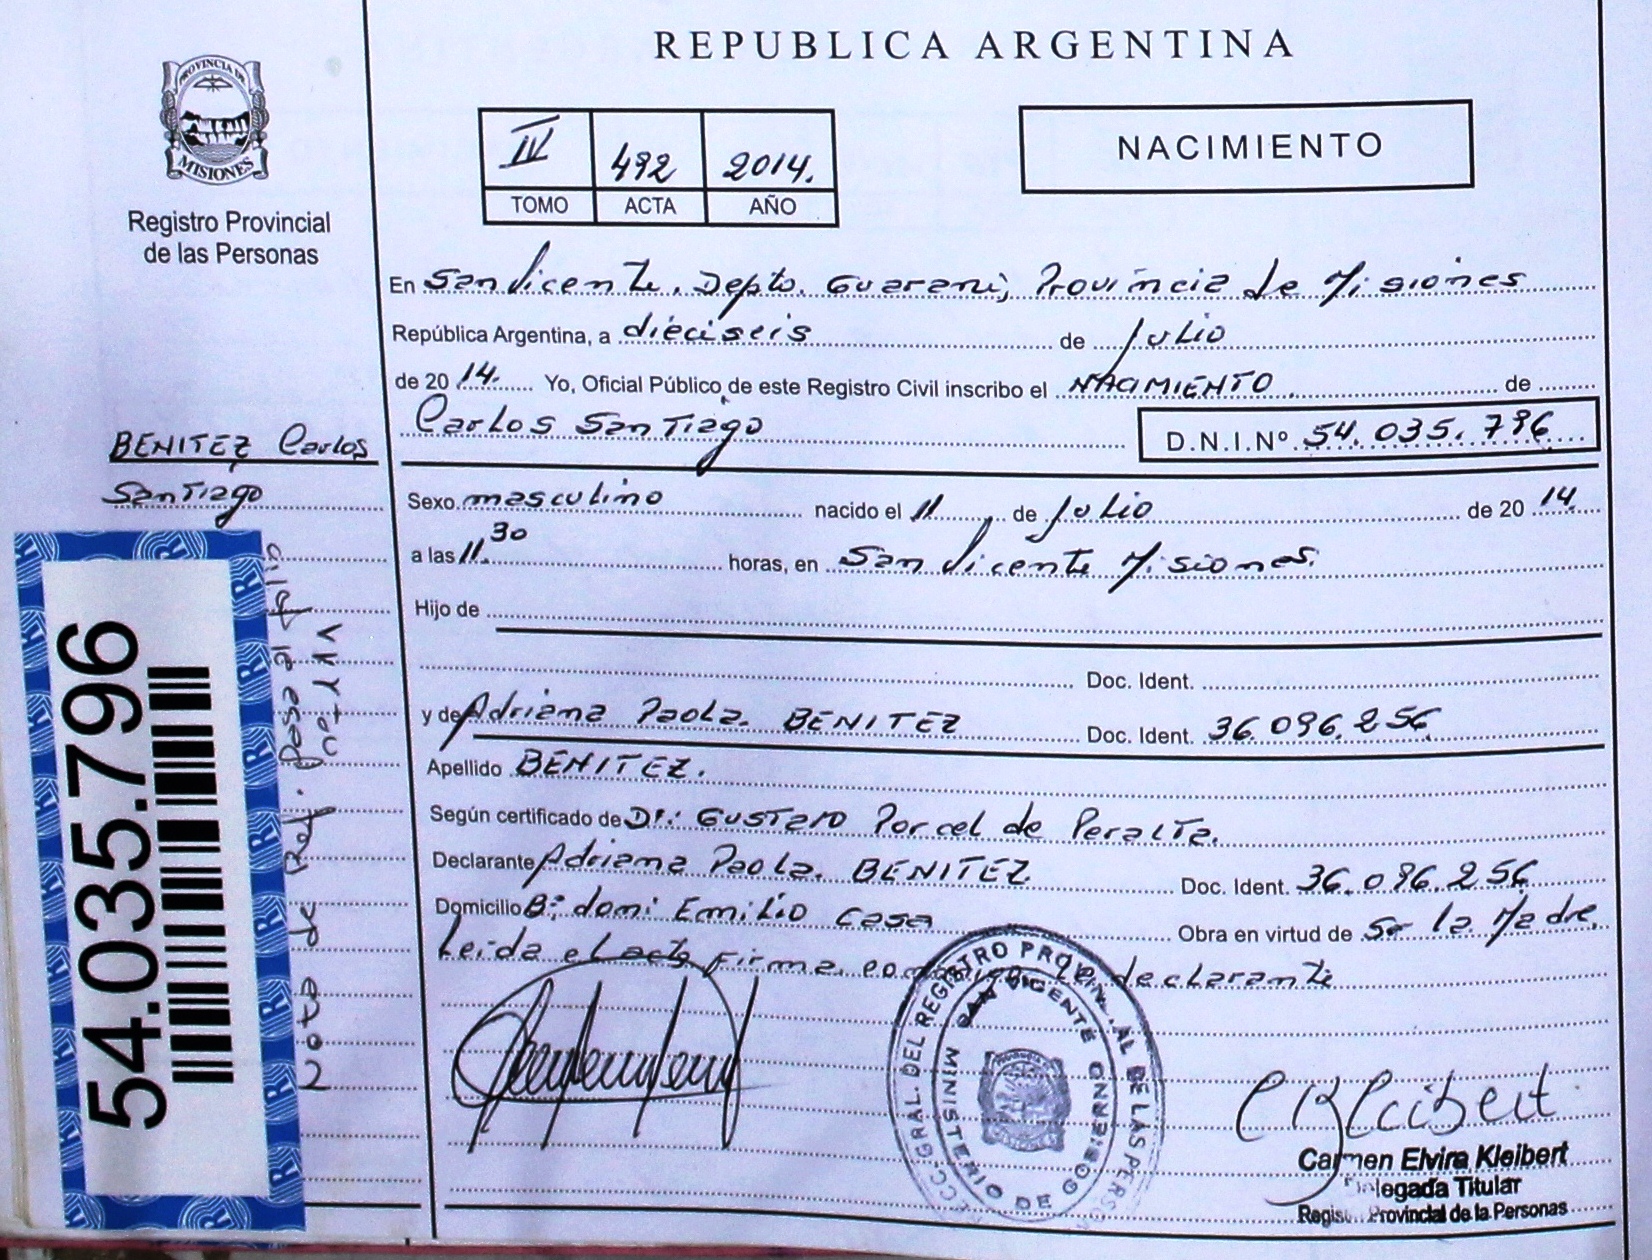 REPUBLICA ARGENTINA
PROVINCIA DE
MISIONES
Registro Provincial
de las Personas
IV 492 2014.
TOMO ACTA AÑO
NACIMIENTO
En San Vicente, Depto. Guaraní, Provincia de Misiones
República Argentina, a dieciseis de Julio
de 2014. Yo, Oficial Público de este Registro Civil inscribo el NACIMIENTO de
Carlos Santiago D.N.I.Nº 54.035.796
BENITEZ, Carlos
Santiago
Sexo masculino nacido el 11 de Julio de 2014.
a las 11.30 horas, en San Vicente Misiones.
Hijo de
Doc. Ident.
y de Adriana Paola. BENITEZ Doc. Ident. 36.096.256
Apellido BENITEZ.
Según certificado de Dr.: Gustavo Porcel de Peralta.
Declarante Adriana Paola. BENITEZ Doc. Ident. 36.096.256
Domicilio Bº: domi Emilio Casa Obra en virtud de Ser la Madre.
Leida el acta firma conmigo la declarante
54.035.796
GRAL. DEL REGISTRO PROVINCIAL DE LAS PERSONAS
SAN VICENTE
MINISTERIO DE GOBIERNO
CKleibert
Carmen Elvira Kleibert
Delegada Titular
Registro Provincial de la Personas